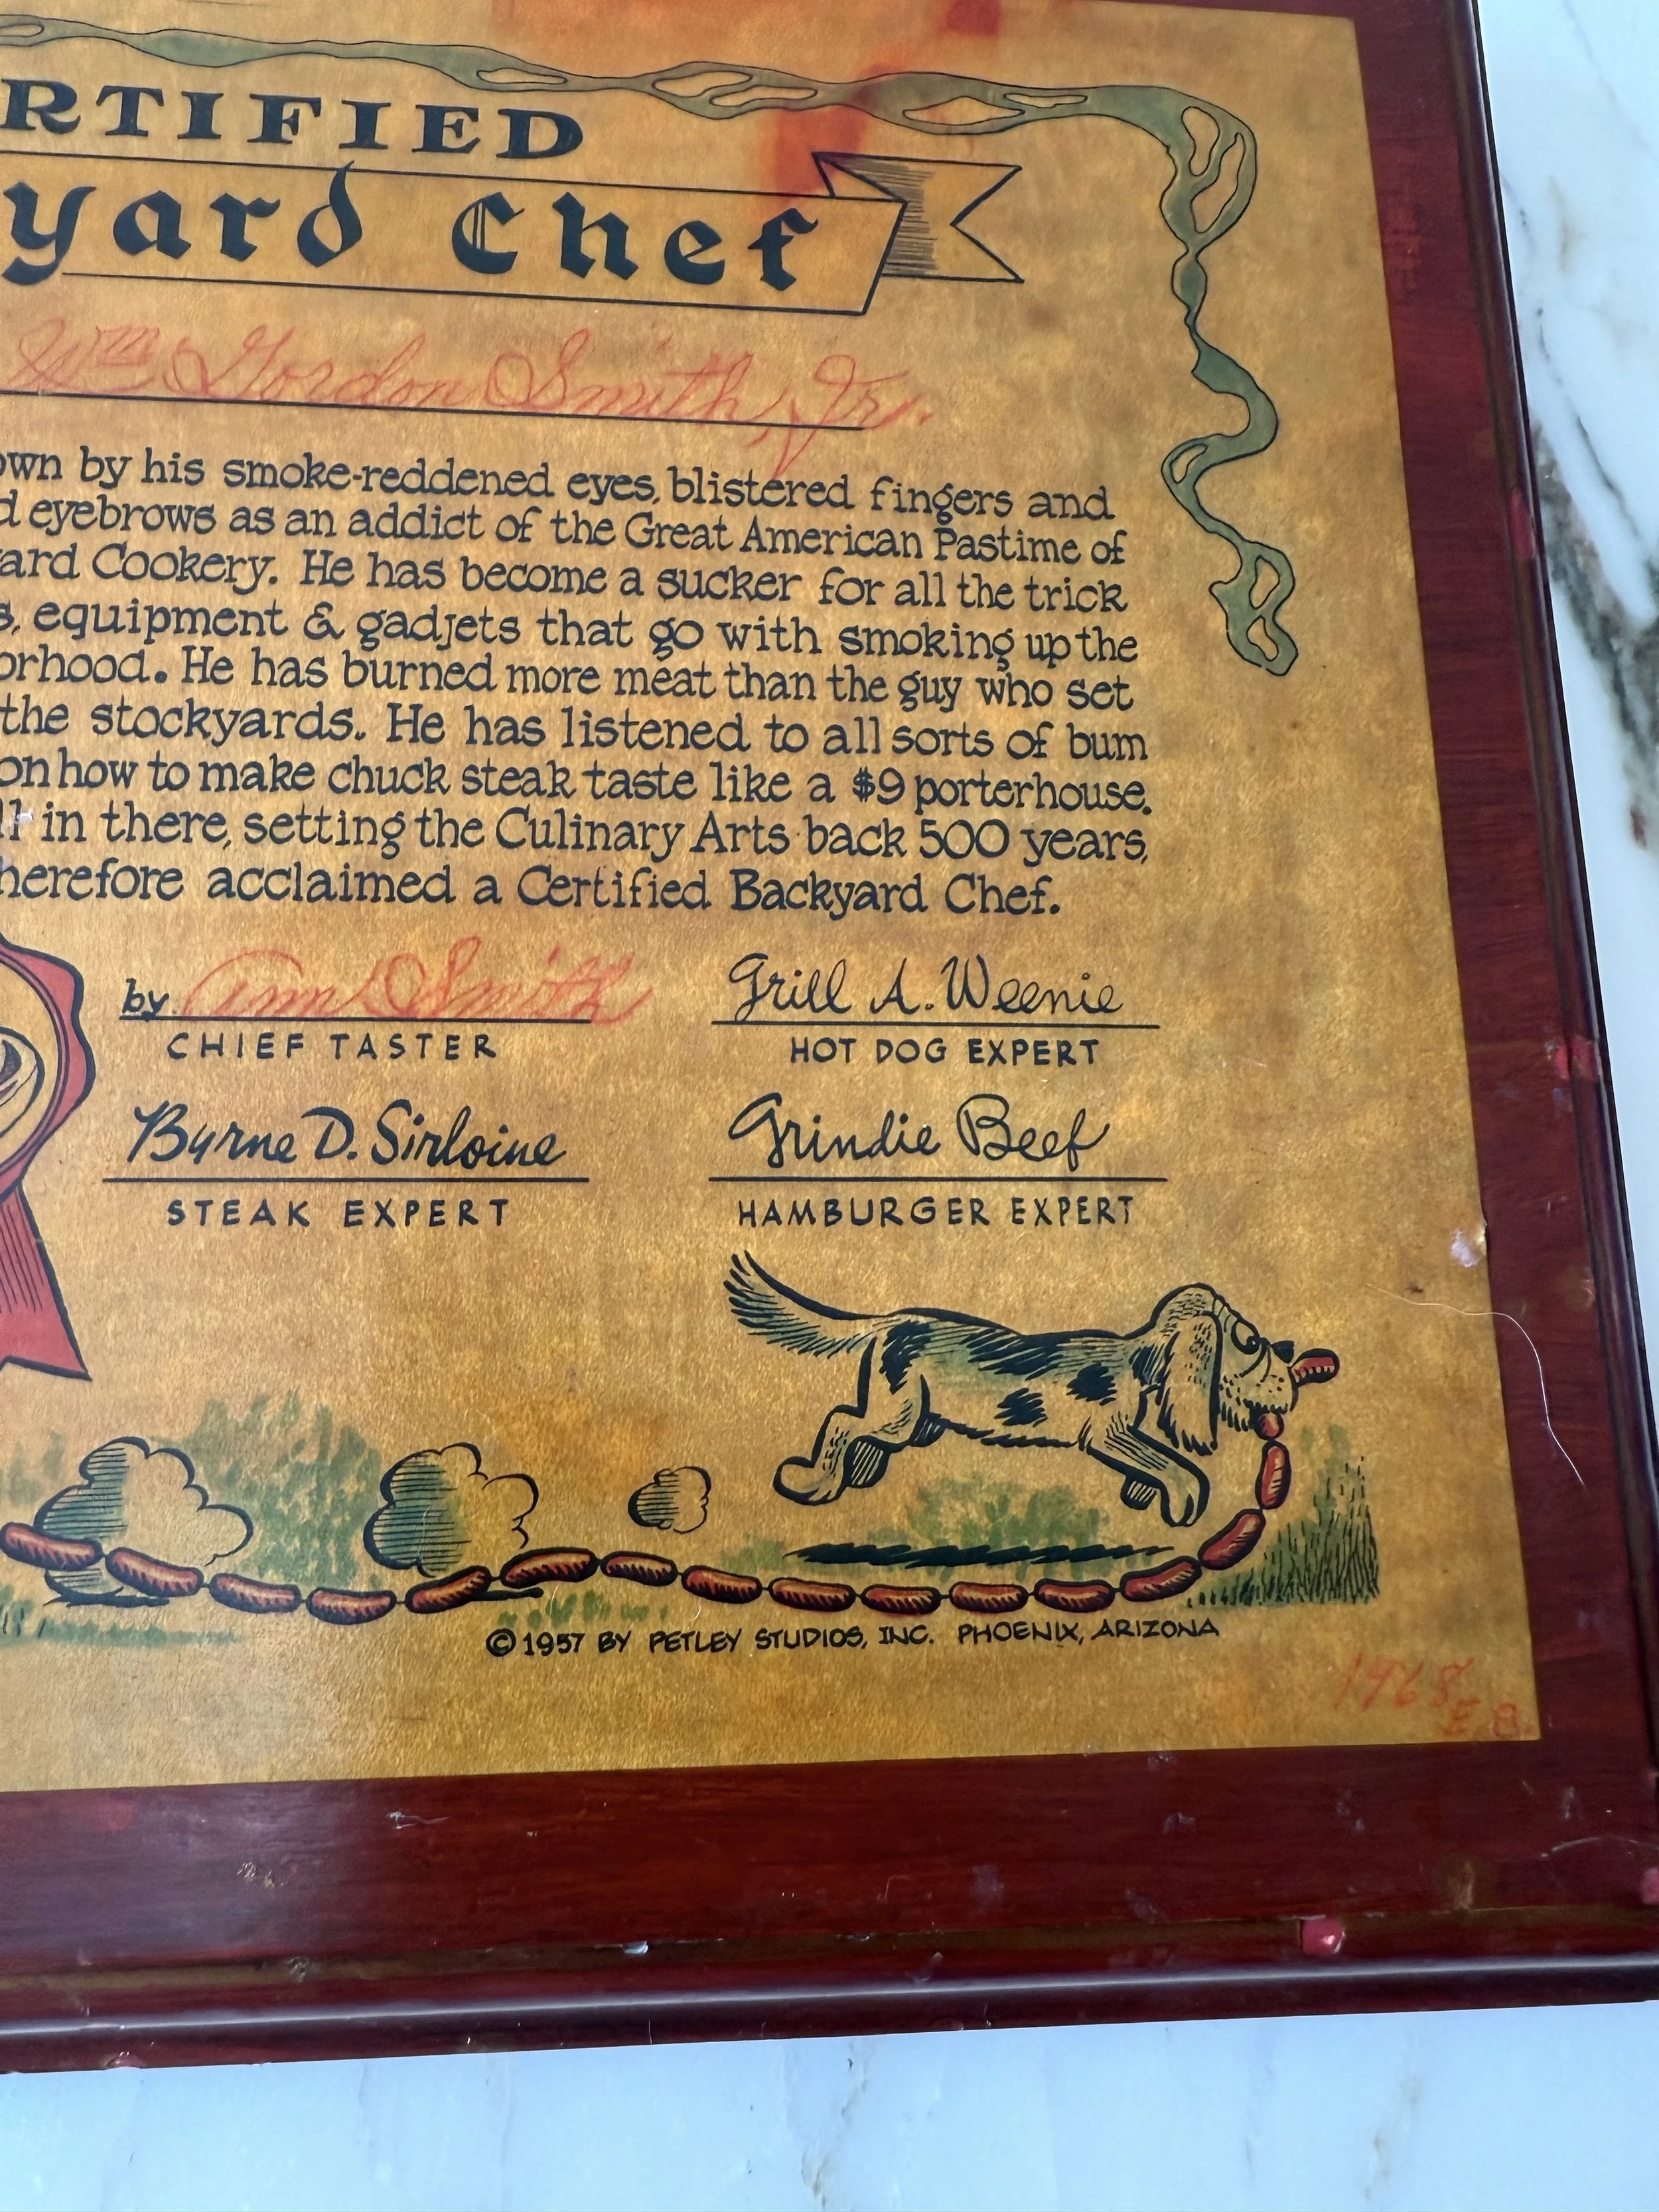 RTIFIED
yard Chef
Wm Gordon Smith, Jr.
own by his smoke-reddened eyes, blistered fingers and
d eyebrows as an addict of the Great American Pastime of
ard Cookery. He has become a sucker for all the trick
s, equipment & gadjets that go with smoking up the
orhood. He has burned more meat than the guy who set
the stockyards. He has listened to all sorts of bum
on how to make chuck steak taste like a $9 porterhouse.
in there, setting the Culinary Arts back 500 years,
herefore acclaimed a Certified Backyard Chef.
by Ann Smith
CHIEF TASTER
Grill A. Weenie
HOT DOG EXPERT
Byrne D. Sirloine
STEAK EXPERT
Grindie Beef
HAMBURGER EXPERT
© 1957 BY PETLEY STUDIOS, INC. PHOENIX, ARIZONA
1968
E. B.